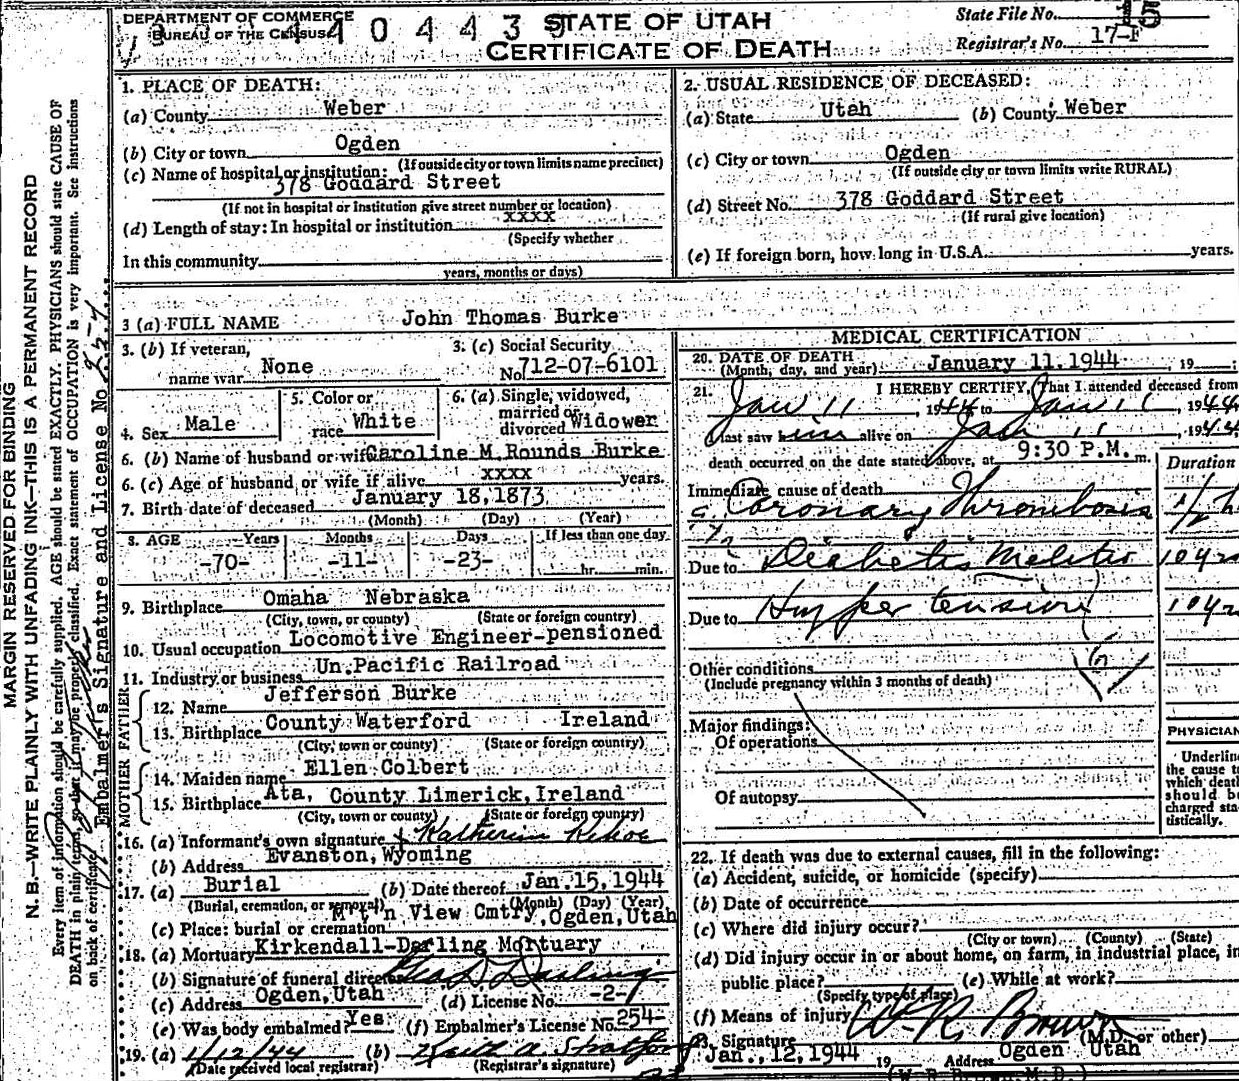 DEPARTMENT OF COMMERCE
BUREAU OF THE CENSUS
STATE OF UTAH
CERTIFICATE OF DEATH
State File No. 15
Registrar's No. 17-F
1. PLACE OF DEATH:
(a) County Weber
(b) City or town Ogden
(If outside city or town limits name precinct)
(c) Name of hospital or institution:
378 Goddard Street
(If not in hospital or institution give street number or location)
(d) Length of stay: In hospital or institution xxxx
(Specify whether
In this community
years, months or days)
2. USUAL RESIDENCE OF DECEASED:
(a) State Utah (b) County Weber
(c) City or town Ogden
(If outside city or town limits write RURAL)
(d) Street No. 378 Goddard Street
(If rural give location)
(e) If foreign born, how long in U.S.A. years.
3 (a) FULL NAME John Thomas Burke
3. (b) If veteran,
name war None
3. (c) Social Security
No. 712-07-6101
4. Sex Male
5. Color or
race White
6. (a) Single, widowed,
married or
divorced Widower
6. (b) Name of husband or wife Caroline M Rounds Burke
6. (c) Age of husband or wife if alive xxxx years.
7. Birth date of deceased January 18,1873
(Month) (Day) (Year)
8. AGE Years Months Days If less than one day
-70- -11- -23- hr. min.
9. Birthplace Omaha Nebraska
(City, town, or county) (State or foreign country)
10. Usual occupation Locomotive Engineer-pensioned
11. Industry or business Un.Pacific Railroad
FATHER
12. Name Jefferson Burke
13. Birthplace County Waterford Ireland
(City, town or county) (State or foreign country)
MOTHER
14. Maiden name Ellen Colbert
15. Birthplace Ata, County Limerick, Ireland
(City, town or county) (State or foreign country)
16. (a) Informant's own signature Katherine Kehoe
(b) Address Evanston, Wyoming
17. (a) Burial (b) Date thereof Jan. 15, 1944
(Burial, cremation, or removal) (Month) (Day) (Year)
(c) Place: burial or cremation M't'n View Cmtry, Ogden, Utah
18. (a) Mortuary Kirkendall-Darling Mortuary
(b) Signature of funeral director Geo D. Darling
(c) Address Ogden, Utah (d) License No. -2-
(e) Was body embalmed? Yes (f) Embalmer's License No. -254-
19. (a) 1/12/44 (b) Keith A. Stratford
(Date received local registrar) (Registrar's signature)
MEDICAL CERTIFICATION
20. DATE OF DEATH
(Month, day, and year) January 11.1944, 19
21. I HEREBY CERTIFY, That I attended deceased from
Jan 11, 1944 to Jan 11, 1944
I last saw him alive on Jan 11, 1944
death occurred on the date stated above, at 9:30 P.M. m.
Duration
Immediate cause of death
Coronary Thrombosis 1/2 h
Due to Diabetis Melitis 10 yrs
Due to Hypertension 10 yrs
Other conditions
(Include pregnancy within 3 months of death)
Major findings:
Of operations
Of autopsy
PHYSICIAN
Underline
the cause to
which death
should be
charged sta-
tistically.
22. If death was due to external causes, fill in the following:
(a) Accident, suicide, or homicide (specify)
(b) Date of occurrence
(c) Where did injury occur?
(City or town) (County) (State)
(d) Did injury occur in or about home, on farm, in industrial place, in
public place? (e) While at work?
(Specify type of place)
(f) Means of injury
23. Signature W. R. Brown (M.D. or other)
Jan., 12, 1944 19 Address Ogden Utah
(W.R.Brown M.D.)
MARGIN RESERVED FOR BINDING
N. B.—WRITE PLAINLY WITH UNFADING INK—THIS IS A PERMANENT RECORD
Every item of information should be carefully supplied. AGE should be stated EXACTLY. PHYSICIANS should state CAUSE OF
DEATH in plain terms, so that it may be properly classified. Exact statement of OCCUPATION is very important. See instructions
on back of certificate.
Embalmer's Signature and License No. 254